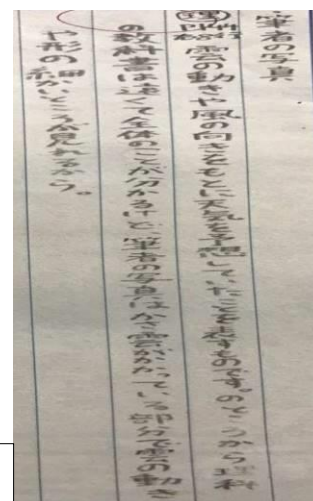 筆者の写真
理由 雲の動きや風の向きをもとに天気を予想していたことを表すものです。のところから理科
の教科書は遠くて全体のことが分かるけど、筆者の写真はかさ雲がかかっている部分で雲の動き
や形の細かいところが見れるから。